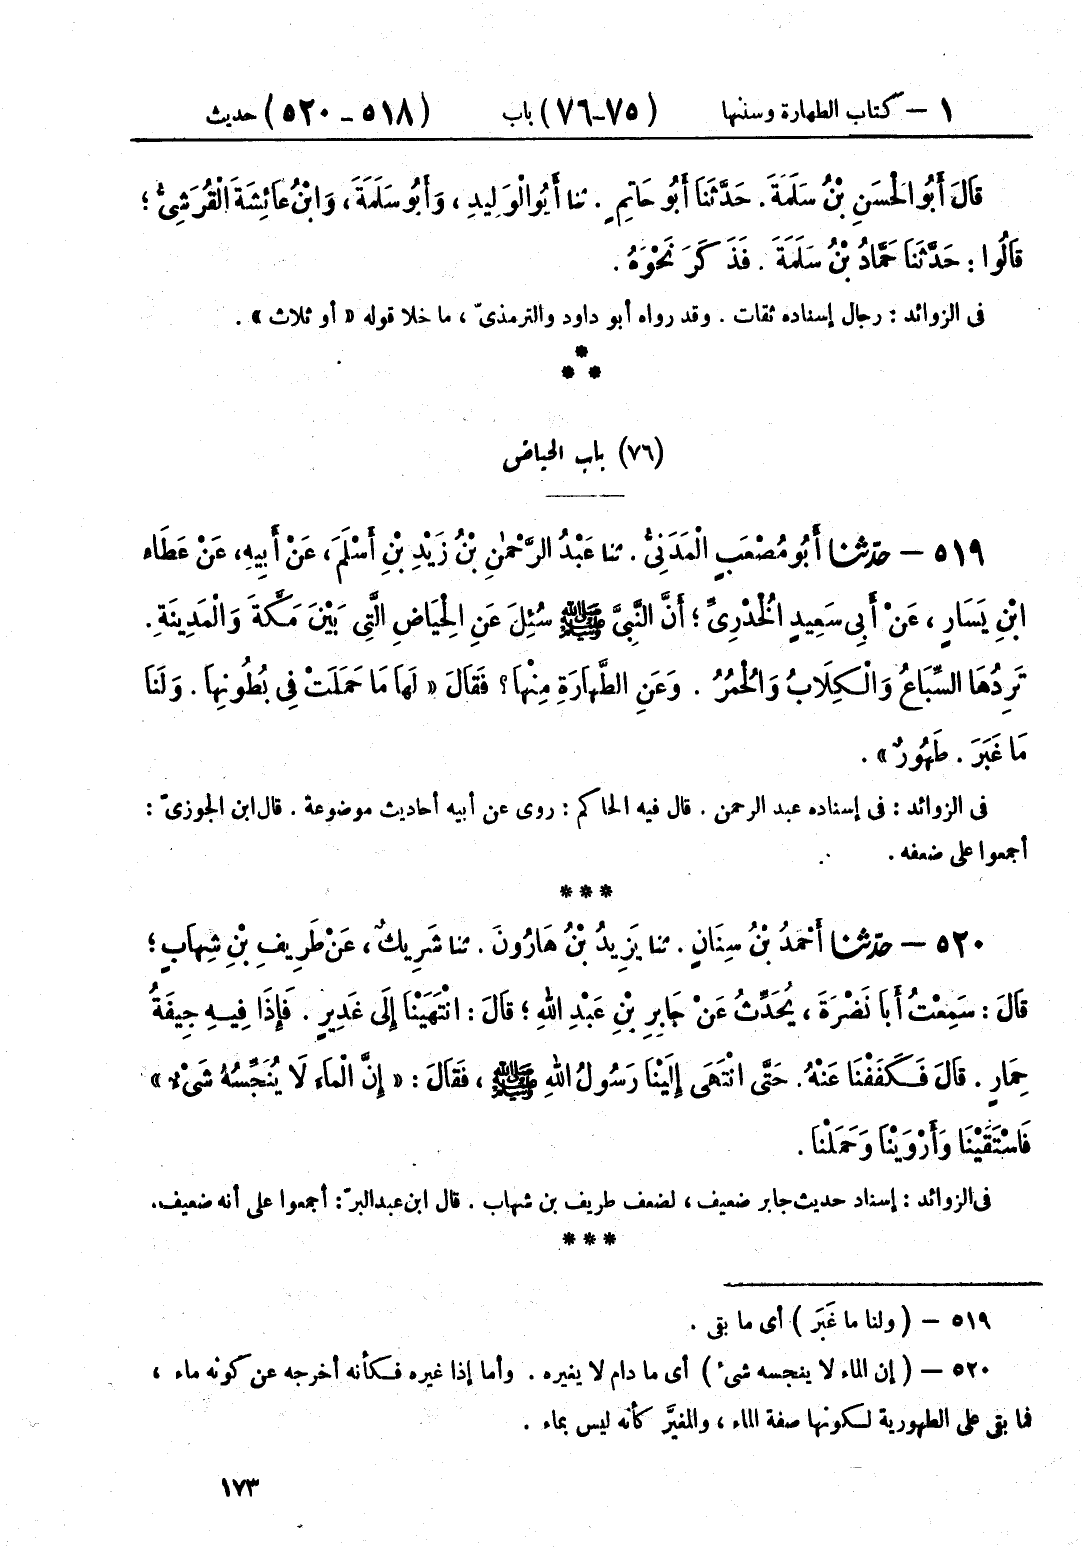 ١ – كتاب الطهارة وسننها (٧٥-٧٦) باب (٥١٨ – ٥٢٠) حديث
قَالَ أَبُو الْحَسَنِ بْنُ سَلَمَةَ. حَدَّثَنَا أَبُو حَاتِمٍ . ثنا أَبُو الْوَلِيدِ ، وَأَبُو سَلَمَةَ، وَابْنُ عَائِشَةَ الْقُرَشِىُّ ؛
قَالُوا : حَدَّثَنَا حَمَّادُ بْنُ سَلَمَةَ . فَذَكَرَ نَحْوَهُ .
فى الزوائد : رجال إسناده ثقات . وقد رواه أبو داود والترمذىّ ، ما خلا قوله « أو ثلاث » .
*
* *
(٧٦) باب الحياض
٥١٩ – حدّثنا أَبُو مُصْعَبٍ الْمَدَنِىُّ . ثنا عَبْدُ الرَّحْمٰنِ بْنُ زَيْدِ بْنِ أَسْلَمَ، عَنْ أَبِيهِ، عَنْ عَطَاءِ
ابْنِ يَسَارٍ ، عَنْ أَبِى سَعِيدٍ الْخُدْرِىِّ ؛ أَنَّ النَّبِىَّ ﷺ سُئِلَ عَنِ الْحِيَاضِ الَّتِى بَيْنَ مَكَّةَ وَالْمَدِينَةِ .
تَرِدُهَا السِّبَاعُ وَالْكِلَابُ وَالْحُمُرُ . وَعَنِ الطَّهَارَةِ مِنْهَا؟ فَقَالَ « لَهَا مَا حَمَلَتْ فِى بُطُونِهَا . وَلَنَا
مَا غَبَرَ . طَهُورٌ » .
فى الزوائد : فى إسناده عبد الرحمن . قال فيه الحاكم : روى عن أبيه أحاديث موضوعة . قال ابن الجوزىّ :
أجمعوا على ضعفه .
* * *
٥٢٠ – حدّثنا أَحْمَدُ بْنُ سِنَانٍ . ثنا يَزِيدُ بْنُ هَارُونَ . ثنا شَرِيكٌ ، عَنْ طَرِيفِ بْنِ شِهَابٍ ؛
قَالَ : سَمِعْتُ أَبَا نَضْرَةَ ، يُحَدِّثُ عَنْ جَابِرِ بْنِ عَبْدِ اللهِ ؛ قَالَ : انْتَهَيْنَا إِلَى غَدِيرٍ . فَإِذَا فِيهِ جِيفَةُ
حِمَارٍ . قَالَ فَكَفَفْنَا عَنْهُ. حَتَّى انْتَهَى إِلَيْنَا رَسُولُ اللهِ ﷺ ، فَقَالَ : « إِنَّ الْمَاءَ لَا يُنَجِّسُهُ شَىْءٌ »
فَاسْتَقَيْنَا وَأَرْوَيْنَا وَحَمَلْنَا .
فى الزوائد : إسناد حديث جابر ضعيف ، لضعف طريف بن شهاب . قال ابن عبد البرّ : أجمعوا على أنه ضعيف.
* * *
٥١٩ – ( ولنا ما غَبَرَ ) أى ما بقى .
٥٢٠ – ( إن الماء لا ينجسه شىء ) أى ما دام لا يغيره . وأما إذا غيره فكأنه أخرجه عن كونه ماء ،
فما بقى على الطهورية لكونها صفة الماء ، والمغيَّر كأنه ليس بماء .
١٧٣